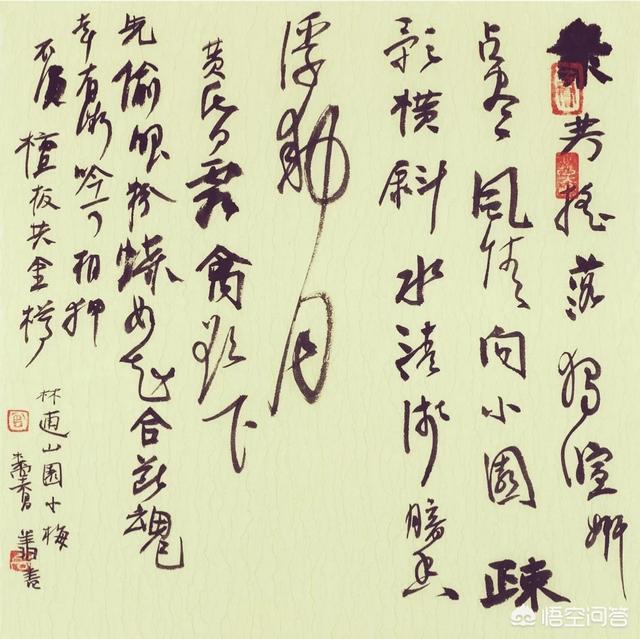 衆芳摇落獨暄妍
占尽風情向小園疎
影横斜水清浅暗香
浮動月
黄昏霜禽欲下
先偷眼粉蝶如知合断魂
幸有微吟可相狎
不須檀板共金樽
林逋山園小梅
悟空问答